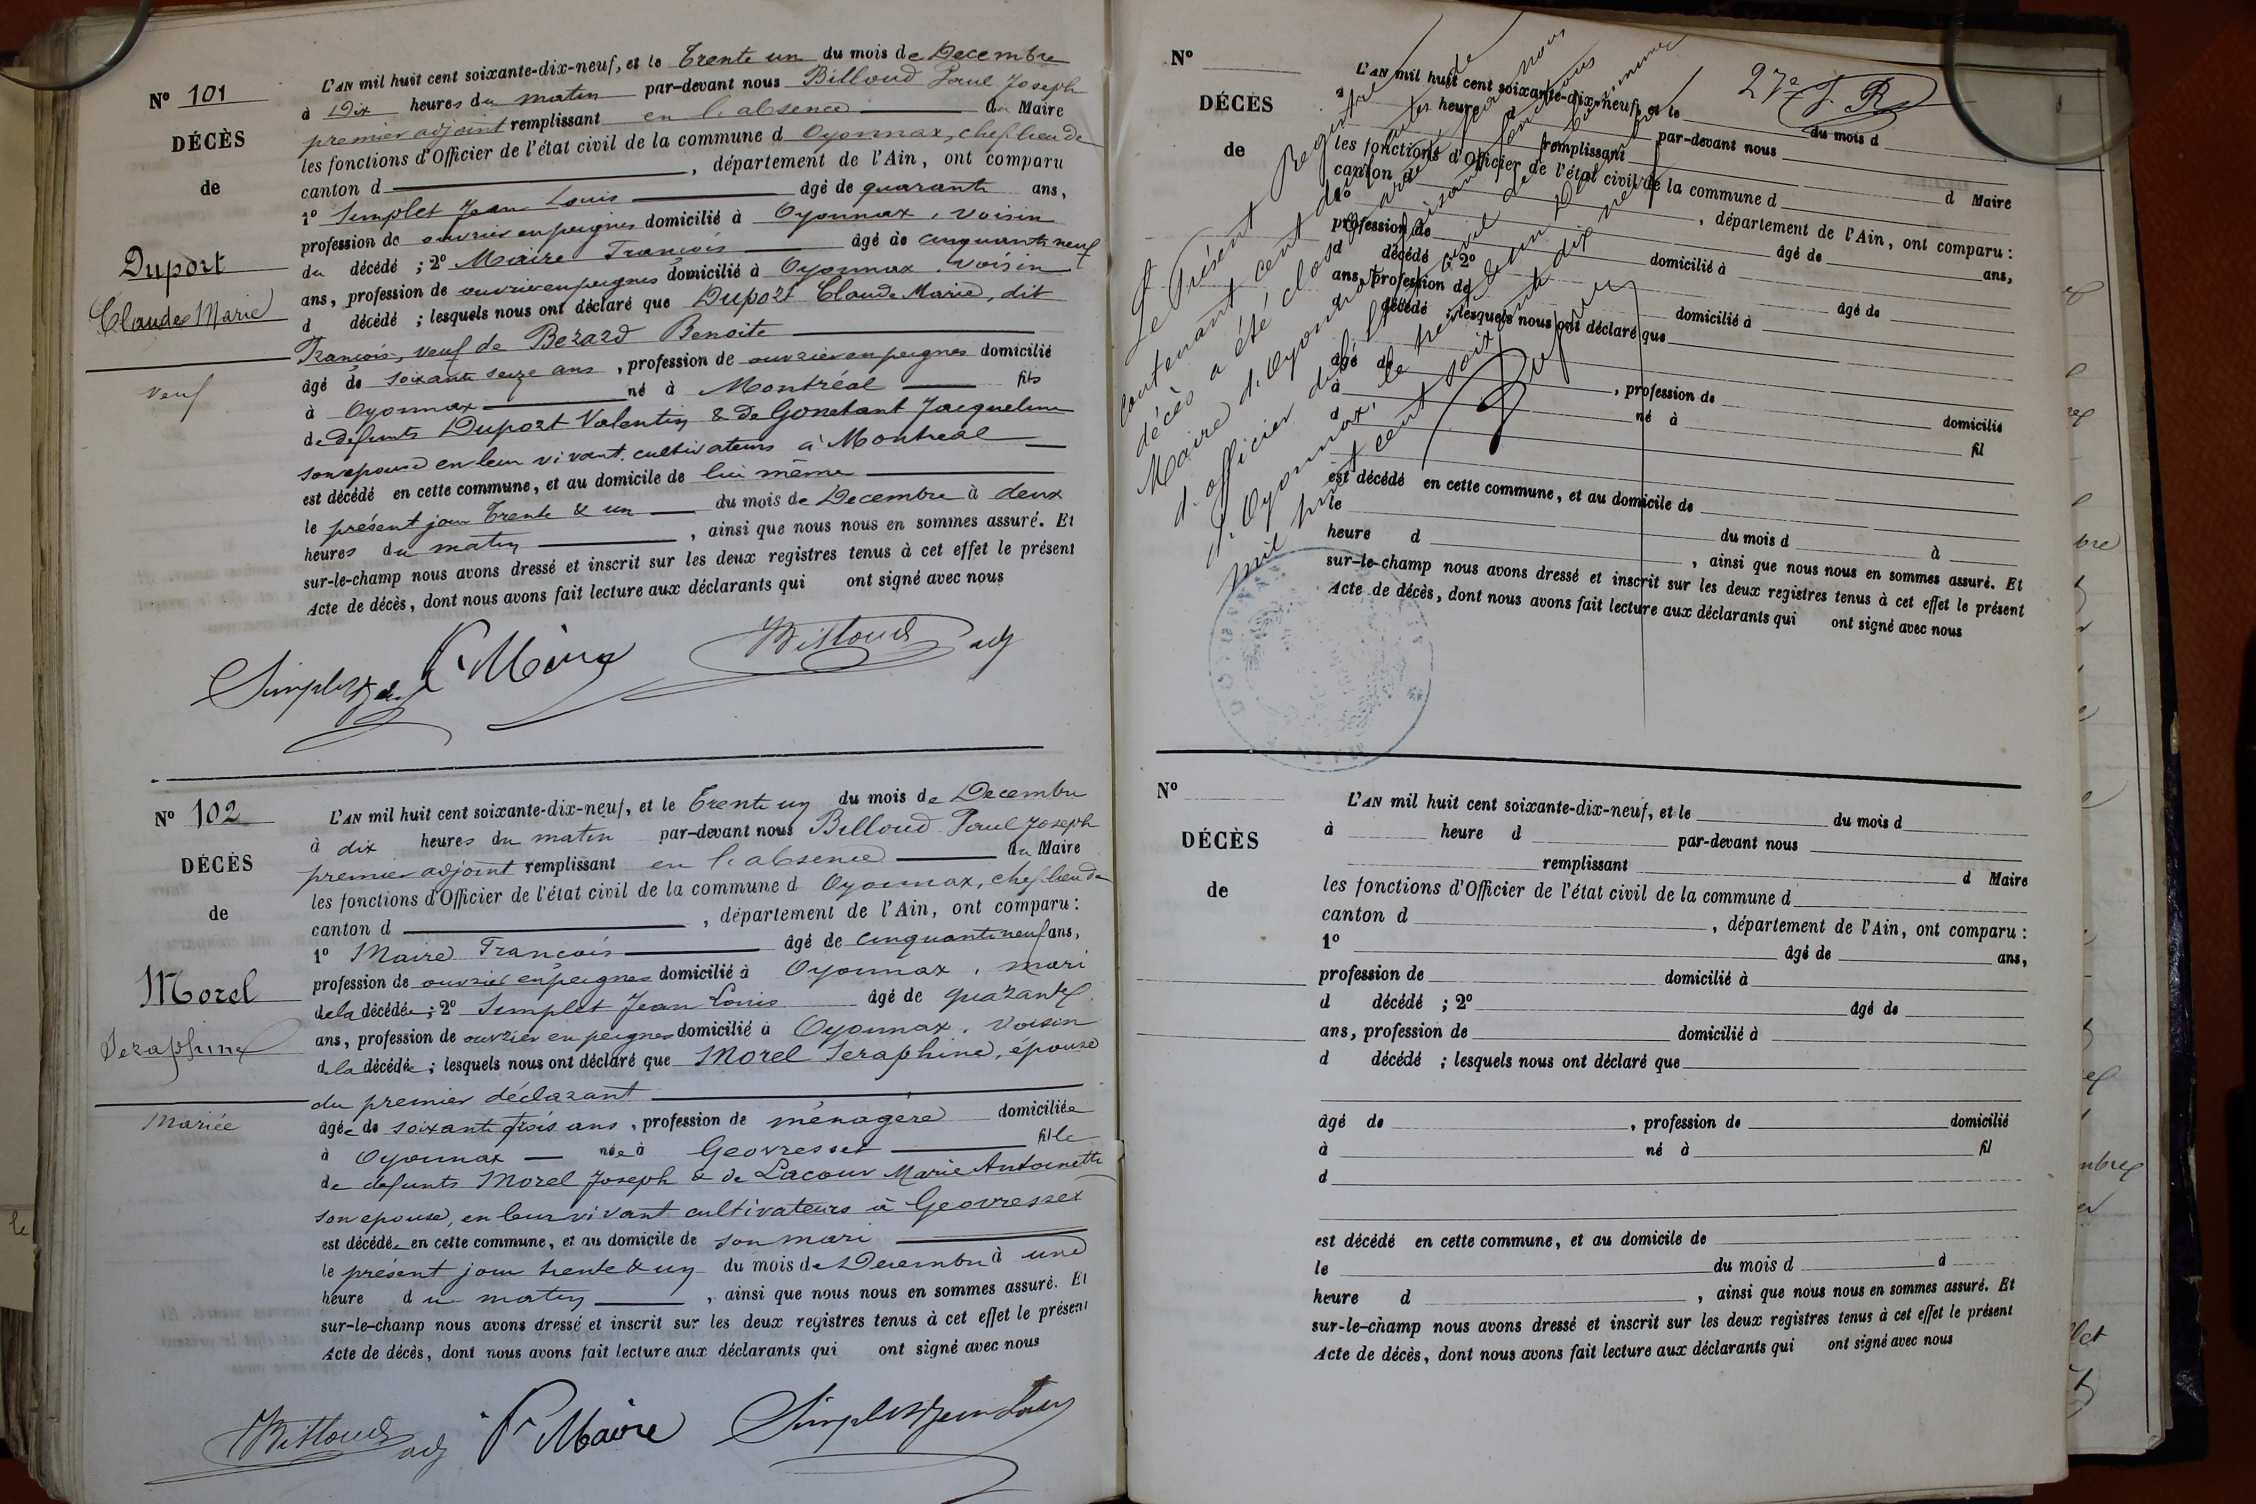 Nº 101
DÉCÈS
de
Duport
Claude Marie
veuf
L'AN mil huit cent soixante-dix-neuf, et le Trente un du mois de Decembre
à Dix heures du matin par-devant nous Billoud Paul Joseph
premier adjoint remplissant en l'absence du Maire
les fonctions d'Officier de l'état civil de la commune d Oyonnax, chef lieu de
canton d , département de l'Ain, ont comparu
1º Simplet Jean Louis âgé de quarante ans,
profession de ouvrier en peignes domicilié à Oyonnax, voisin
du décédé ; 2º Maire François âgé de cinquante neuf
ans, profession de ouvrier en peignes domicilié à Oyonnax, voisin
d décédé ; lesquels nous ont déclaré que Duport Claude Marie, dit
François, veuf de Bezard Benoite
âgé de soixante seize ans , profession de ouvrier en peignes domicilié
à Oyonnax né à Montréal fils
de defunts Duport Valentin & de Gonetant Jacqueline
son epouse en leur vivant cultivateurs à Montreal
est décédé en cette commune, et au domicile de lui même
le présent jour Trente & un du mois de Decembre à deux
heures du matin , ainsi que nous nous en sommes assuré. Et
sur-le-champ nous avons dressé et inscrit sur les deux registres tenus à cet effet le présent
Acte de décès, dont nous avons fait lecture aux déclarants qui ont signé avec nous
Simplet Fs Maire Billoud adj
Nº 102
DÉCÈS
de
Morel
Seraphine
Mariée
L'AN mil huit cent soixante-dix-neuf, et le Trente un du mois de Decembre
à dix heures du matin par-devant nous Billoud Paul Joseph
premier adjoint remplissant en l'absence du Maire
les fonctions d'Officier de l'état civil de la commune d Oyonnax, chef lieu de
canton d , département de l'Ain, ont comparu :
1º Maire François âgé de cinquante neuf ans,
profession de ouvrier en peignes domicilié à Oyonnax, mari
de la décédée ; 2º Simplet Jean Louis âgé de quarante
ans, profession de ouvrier en peignes domicilié à Oyonnax, voisin
de la décédée ; lesquels nous ont déclaré que Morel Seraphine, épouse
du premier déclarant
âgée de soixante trois ans , profession de ménagère domiciliée
à Oyonnax née à Geovresset fille
de defunts Morel Joseph & de Lacour Marie Antoinette
son epouse, en leur vivant cultivateurs à Geovresset
est décédée en cette commune, et au domicile de son mari
le présent jour trente & un du mois de Decembre à une
heure du matin , ainsi que nous nous en sommes assuré. Et
sur-le-champ nous avons dressé et inscrit sur les deux registres tenus à cet effet le présent
Acte de décès, dont nous avons fait lecture aux déclarants qui ont signé avec nous
Billoud adj Fs Maire Simplet Jean Louis
27e J. R
Nº
DÉCÈS
de
L'AN mil huit cent soixante-dix-neuf, et le du mois d
à heure d par-devant nous
remplissant d Maire
les fonctions d'Officier de l'état civil de la commune d
canton d , département de l'Ain, ont comparu :
1º âgé de ans,
profession de domicilié à
d décédé ; 2º âgé de
ans, profession de domicilié à
d décédé ; lesquels nous ont déclaré que
âgé de , profession de domicilié
à né à fil
d
est décédé en cette commune, et au domicile de
le du mois d à
heure d , ainsi que nous nous en sommes assuré. Et
sur-le-champ nous avons dressé et inscrit sur les deux registres tenus à cet effet le présent
Acte de décès, dont nous avons fait lecture aux déclarants qui ont signé avec nous
Le Présent Registre
contenant cent deux actes de
décès a été clos & arrêté par nous
Maire d'Oyonnax faisant fonctions
d'officier de l'état civil de la commune
d'Oyonnax, le trente un Decembre
mil huit cent soixante dix neuf
Nº
DÉCÈS
de
L'AN mil huit cent soixante-dix-neuf, et le du mois d
à heure d par-devant nous
remplissant d Maire
les fonctions d'Officier de l'état civil de la commune d
canton d , département de l'Ain, ont comparu :
1º âgé de ans,
profession de domicilié à
d décédé ; 2º âgé de
ans, profession de domicilié à
d décédé ; lesquels nous ont déclaré que
âgé de , profession de domicilié
à né à fil
d
est décédé en cette commune, et au domicile de
le du mois d à
heure d , ainsi que nous nous en sommes assuré. Et
sur-le-champ nous avons dressé et inscrit sur les deux registres tenus à cet effet le présent
Acte de décès, dont nous avons fait lecture aux déclarants qui ont signé avec nous